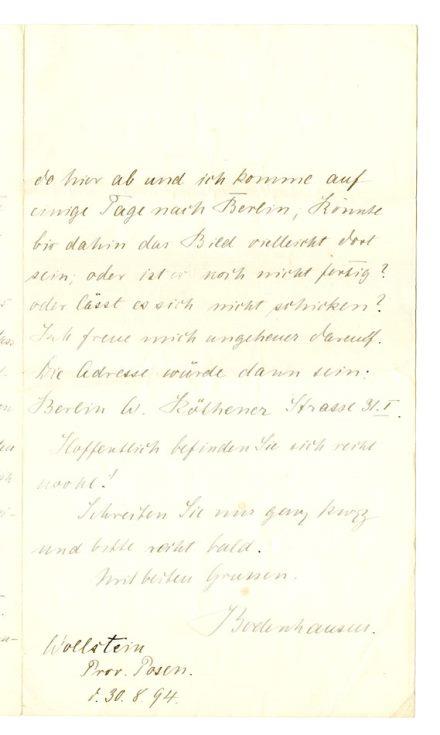 do hier ab und ich komme auf
einige Tage nach Berlin, Könnte
bis dahin das Bild vielleicht dort
sein; oder ist er noch nicht fertig?
oder lässt es sich nicht schicken?
Ich freue mich ungeheuer darauf.
Die Adresse würde dann sein:
Berlin W. Köthener Strasse 31. I.
Hoffentlich befinden Sie sich recht
wohl!
Schreiben Sie mir ganz kurz
und bitte recht bald.
Mit besten Grüssen.
Bodenhausen.
Wollstein
Prov. Posen.
d. 30. 8. 94.